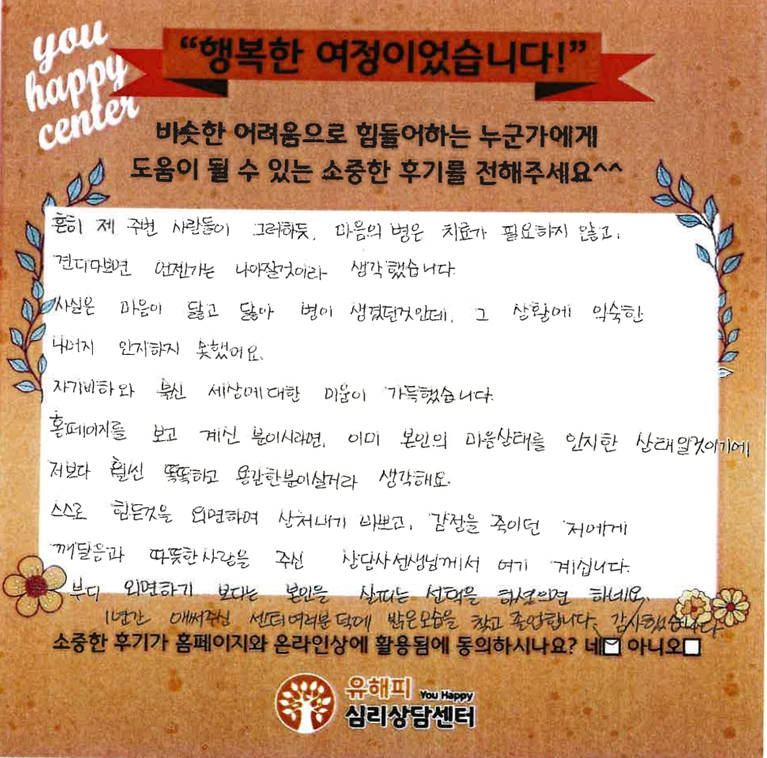 you
happy
center
“행복한 여정이었습니다!”
비슷한 어려움으로 힘들어하는 누군가에게
도움이 될 수 있는 소중한 후기를 전해주세요^^
흔히 제 주변 사람들이 그러하듯, 마음의 병은 치료가 필요하지 않고,
견디다보면 언젠가는 나아질것이라 생각했습니다.
사실은 마음이 닳고 닳아 병이 생겼던것인데, 그 상황에 익숙한
나머지 인지하지 못했어요.
자기비하와 불신 세상에대한 미움이 가득했습니다.
홈페이지를 보고 계신 분이시라면, 이미 본인의 마음상태를 인지한 상태일것이기에
저보다 훨씬 똑똑하고 용감한분이실거라 생각해요.
스스로 힘든것을 외면하며 상처내기 바쁘고, 감정을 죽이던 저에게
깨달음과 따뜻한사랑을 주신 상담사선생님께서 여기 계십니다.
부디 외면하기 보다는 본인을 살피는 선택을 하셨으면 하네요.
1년간 애써주신 센터여러분 덕에 밝은모습을 찾고 졸업합니다. 감사했습니다.
소중한 후기가 홈페이지와 온라인상에 활용됨에 동의하시나요? 네☑ 아니오☐
유해피 You Happy
심리상담센터